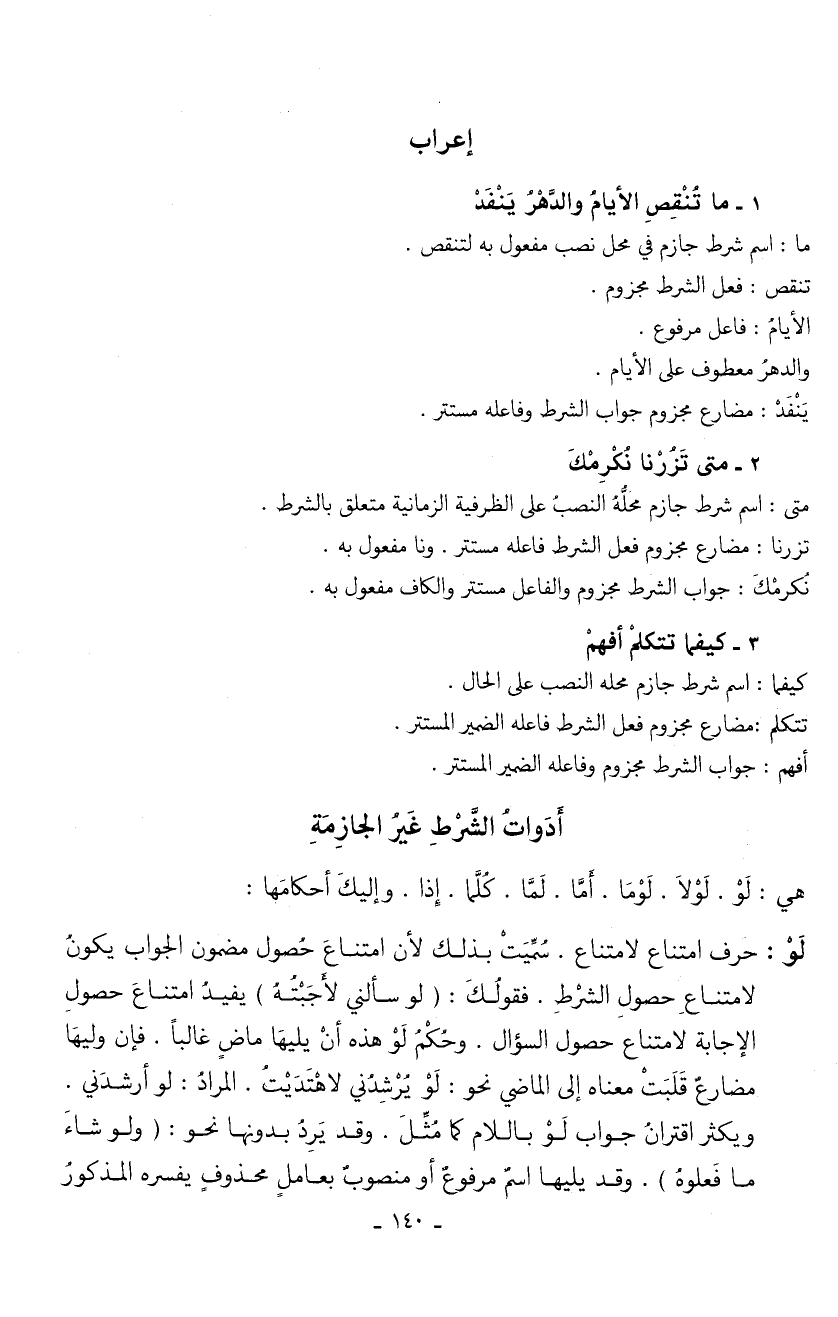 إعراب
١ - ما تُنْقِصِ الأيامُ والدَّهْرُ يَنْفَدْ
ما : اسم شرط جازم في محل نصب مفعول به لتنقص .
تنقص : فعل الشرط مجزوم .
الأيامُ : فاعل مرفوع .
والدهرُ معطوف على الأيام .
يَنْفَدْ : مضارع مجزوم جواب الشرط وفاعله مستتر .
٢ - متى تَزُرْنا نُكْرِمْكَ
متى : اسم شرط جازم محلُّهُ النصبُ على الظرفية الزمانية متعلق بالشرط .
تزرنا : مضارع مجزوم فعل الشرط فاعله مستتر . ونا مفعول به .
نُكرمْكَ : جواب الشرط مجزوم والفاعل مستتر والكاف مفعول به .
٣ - كيفما تتكلمْ أفهمْ
كيفما : اسم شرط جازم محله النصب على الحال .
تتكلم :مضارع مجزوم فعل الشرط فاعله الضمير المستتر .
أفهم : جواب الشرط مجزوم وفاعله الضمير المستتر .
أَدَواتُ الشَّرْطِ غَيْرُ الجازِمَةِ
هي : لَوْ . لَوْلاَ . لَوْمَا . أَمَّا . لَمَّا . كُلَّما . إِذا . وإليكَ أحكامَها :
لَوْ : حرف امتناع لامتناع . سُمِّيَتْ بذلك لأن امتناعَ حُصول مضمون الجواب يكونُ
لامتناعِ حصولِ الشرْطِ . فقولُكَ : ( لو سألني لأَجَبْتُهُ ) يفيدُ امتناعَ حصولِ
الإجابة لامتناع حصول السؤال . وحُكْمُ لَوْ هذه أنْ يليهَا ماضٍ غالباً . فإن وليهَا
مضارعٌ قلَبَتْ معناه إلى الماضي نحو : لَوْ يُرْشِدُني لاهْتَدَيْتُ . المرادُ : لو أرشدَني .
ويكثر اقترانُ جواب لَوْ باللام كما مُثِّلَ . وقد يَرِدُ بدونها نحو : ( ولو شاءَ
ما فَعلوهُ ) . وقد يليها اسمٌ مرفوعٌ أو منصوبٌ بعاملٍ محذوفٍ يفسره المذكورُ
- ١٤٠ -